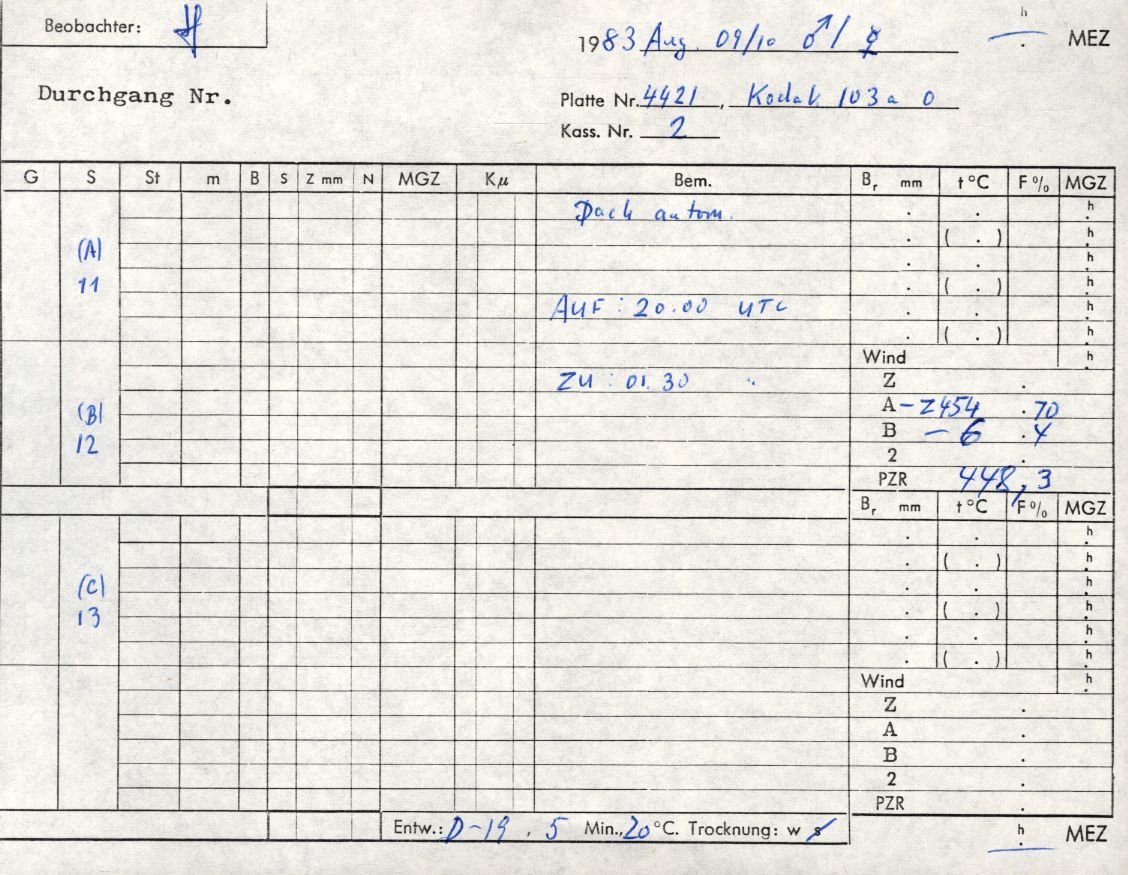 Beobachter:
1983 Aug. 09/10 ♂/☿
h . MEZ
Durchgang Nr.
Platte Nr. 4421, Kodak 103a O
Kass. Nr. 2
G S St m B S Z mm N MGZ Kµ Bem. Br mm t°C F% MGZ
Dach autom. . . h
(A) . ( . ) h
. . h
11 . ( . ) h
AUF : 20.00 UTC . . h
. ( . ) h
Wind h
ZU : 01.30 " Z .
(B) A -2454 .70
12 B -6 .4
2 .
PZR 448,3
Br mm t°C F% MGZ
. . h
. ( . ) h
(C) . . h
13 . ( . ) h
. . h
. ( . ) h
Wind h
Z .
A .
B .
2 .
PZR .
Entw.: D-19, 5 Min., 20°C. Trocknung: w s
h . MEZ